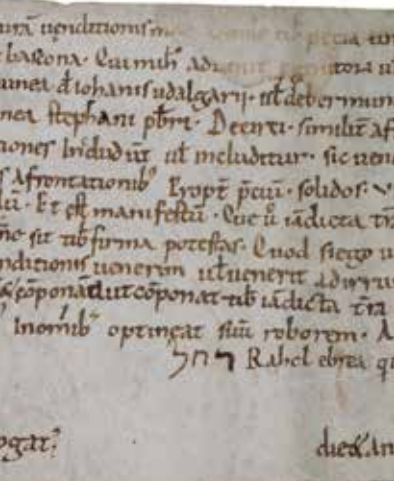 ura uenditionis
barcona. Qui mihi aduenit
uinea d iohanis udalgarii. ul de bermun
nea stephani pbri. De circi. similit af
tiones Includunt ul includitur. sic uen
s afrontationib; Propt pciu. solidos. v
Et est manifestu. Que u iadicta tra
sit tibi firma potestas. Quod si ego u
nditionis uenerim ul uenerit adirru
coponat aut coponat tibi iadicta tra
Inomib; optineat suu roborem. A
רחל Rahel ebrea q
ogat?
die & an